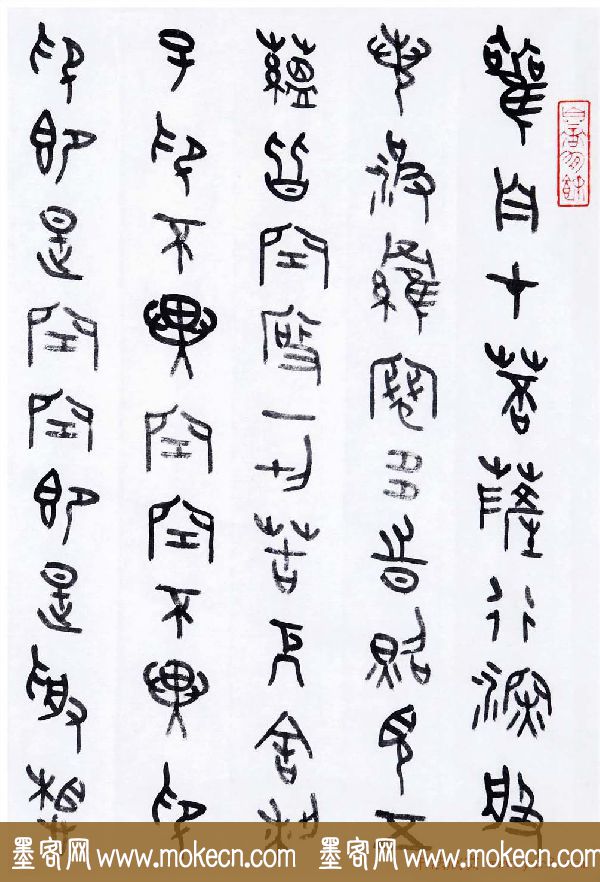 觀自在菩薩行深般
若波羅蜜多時照見五
蘊皆空度一切苦厄舍利
子色不異空空不異色
色即是空空即是想
墨客网 www.mokecn.com 墨客网 www.mokecn.com